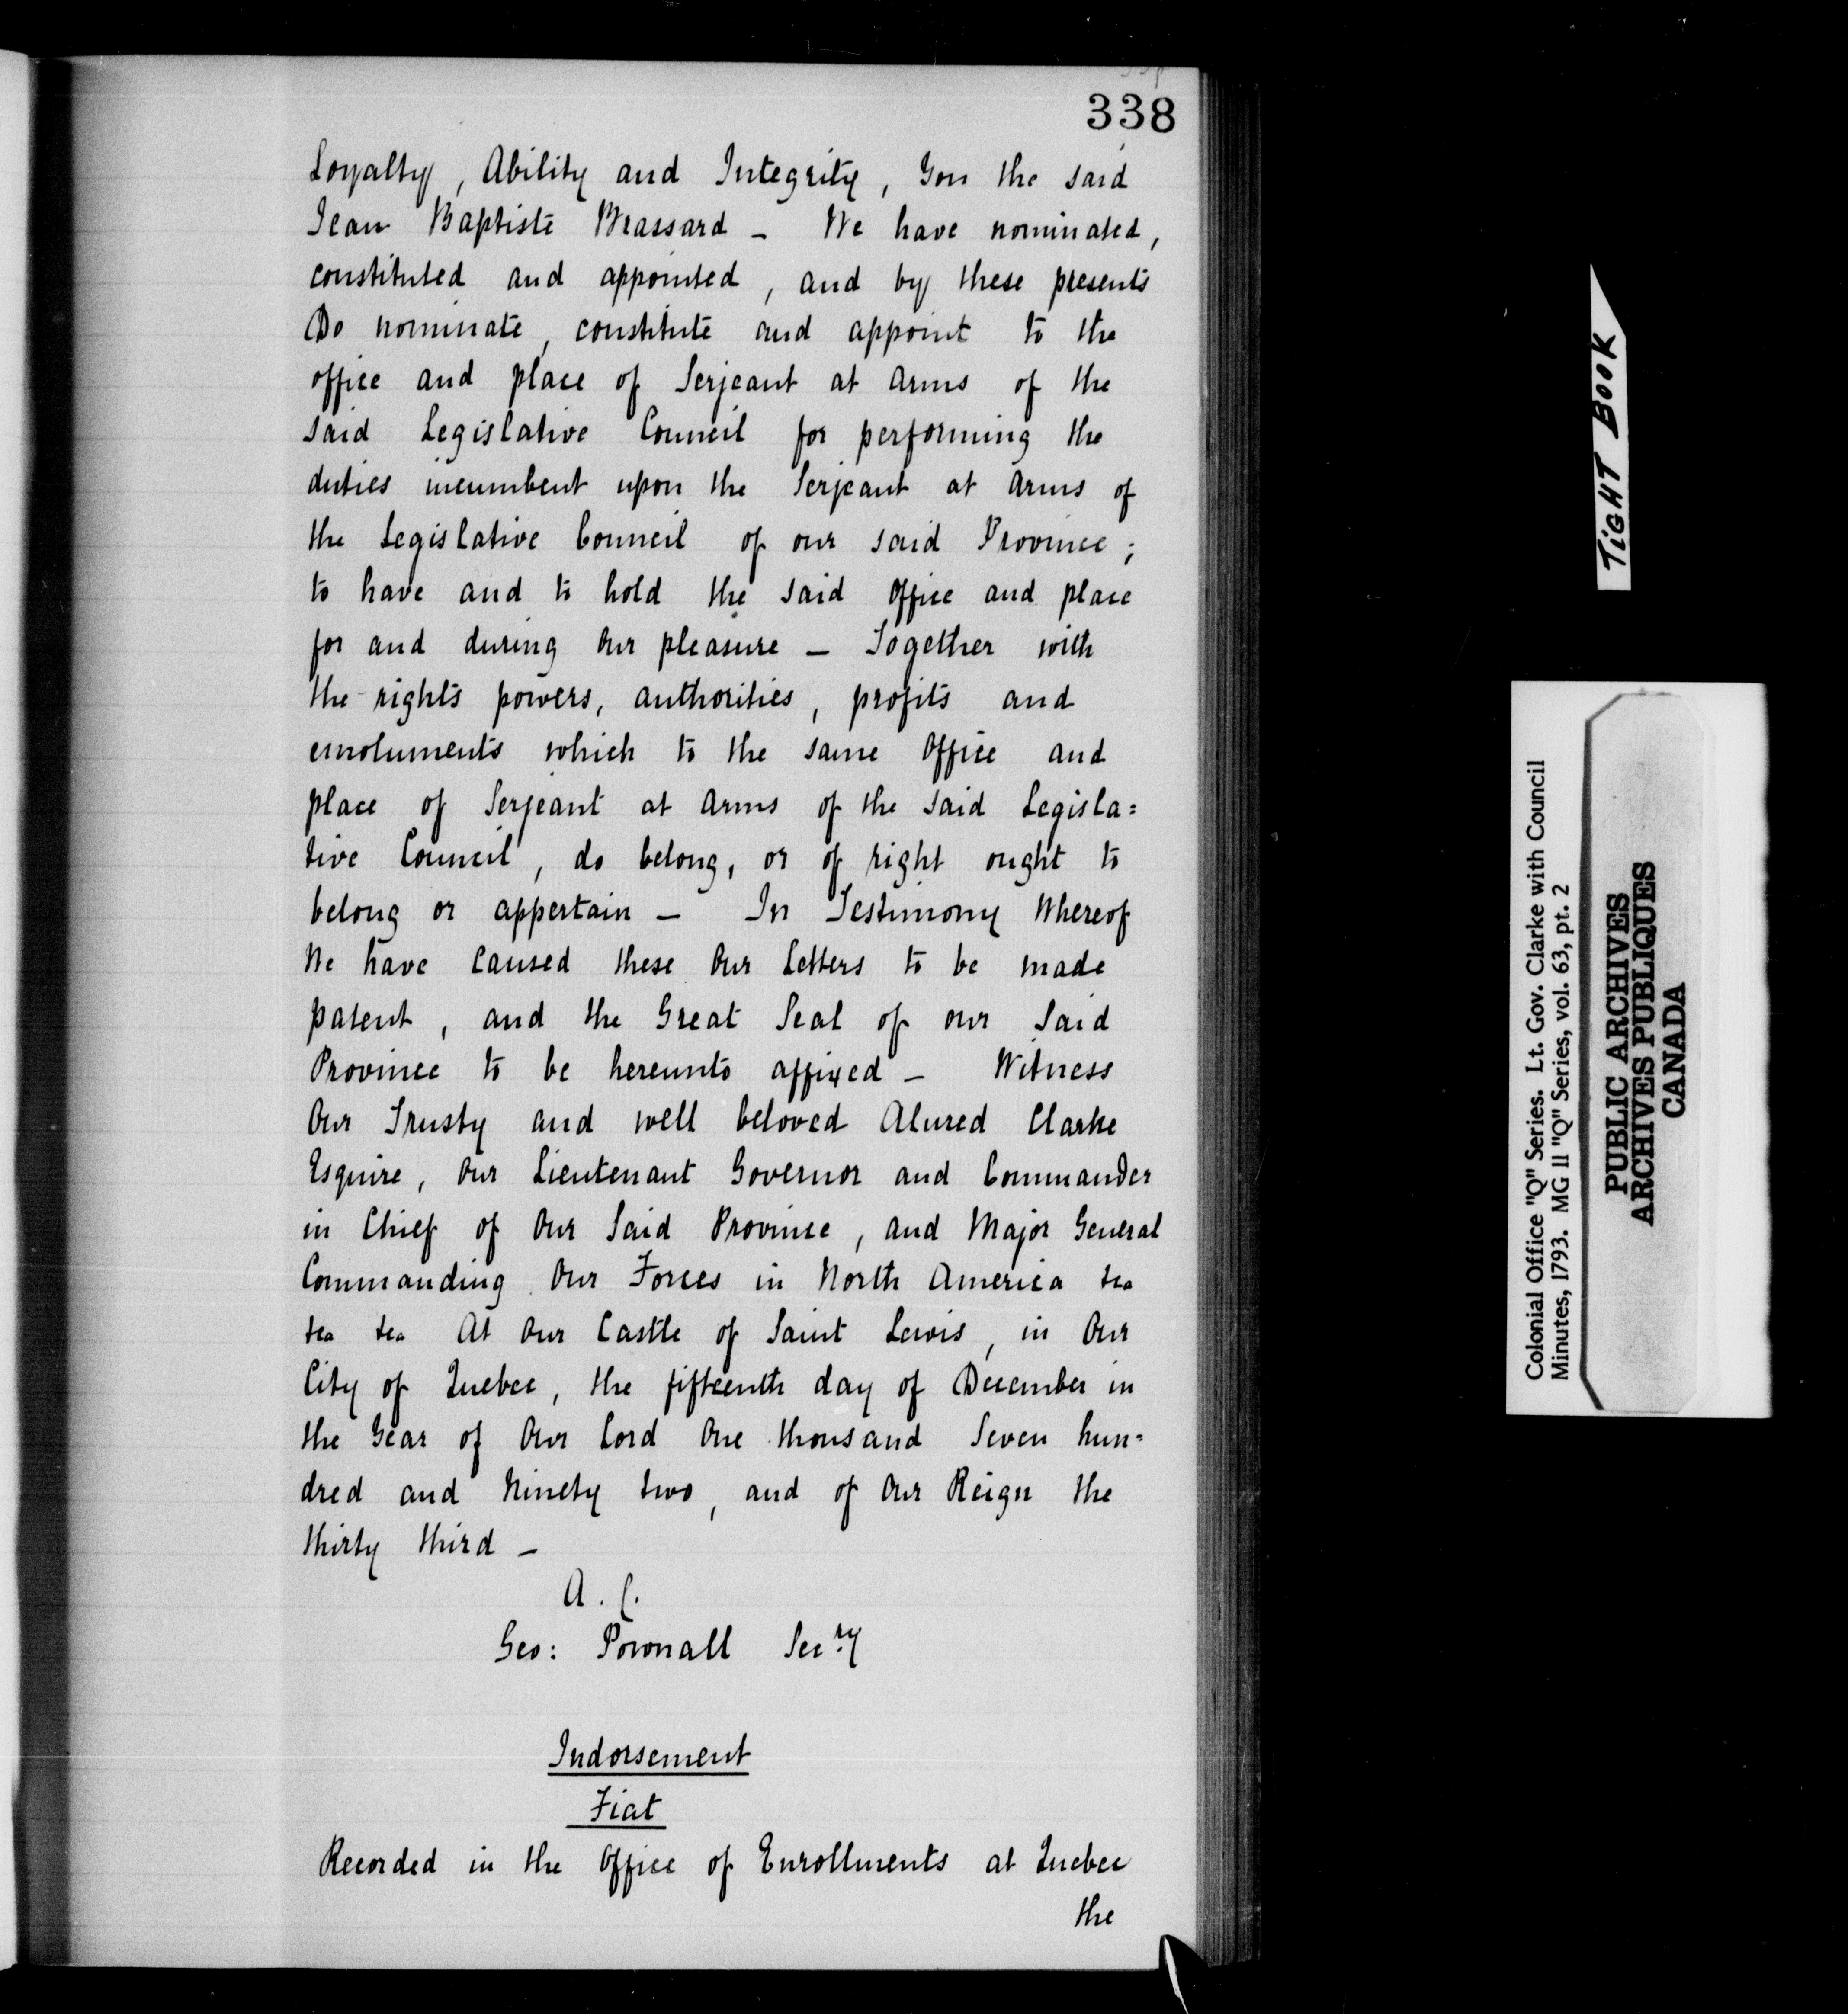 338
Loyalty, Ability and Integrity, You the said
Jean Baptiste Brassard - We have nominated,
constituted and appointed, and by these presents
Do nominate, constitute and appoint to the
office and place of Serjeant at Arms of the
said Legislative Council for performing the
duties incumbent upon the Serjeant at Arms of
the Legislative Council of our said Province;
to have and to hold the said Office and place
for and during Our pleasure - Together with
the rights powers, authorities, profits and
emoluments which to the same Office and
place of Serjeant at Arms of the said Legisla=
tive Council, do belong, or of right ought to
belong or appertain - In Testimony Whereof
We have caused these Our Letters to be made
patent, and the Great Seal of our Said
Province to be hereunto affixed - Witness
Our Trusty and well beloved Alured Clarke
Esquire, Our Lieutenant Governor and Commander
in Chief of Our Said Province, and Major General
Commanding Our Forces in North America &ca
&ca &ca At Our Castle of Saint Lewis, in Our
City of Quebec, the fifteenth day of December in
the Year of Our Lord One thousand Seven hun=
dred and Ninety two, and of Our Reign the
thirty third -
A. C.
Geo: Pownall Secry
Indorsement
Fiat
Recorded in the Office of Enrollments at Quebec
the
TIGHT BOOK
Colonial Office "Q" Series. Lt. Gov. Clarke with Council
Minutes, 1793. MG 11 "Q" Series, vol. 63, pt. 2
PUBLIC ARCHIVES
ARCHIVES PUBLIQUES
CANADA